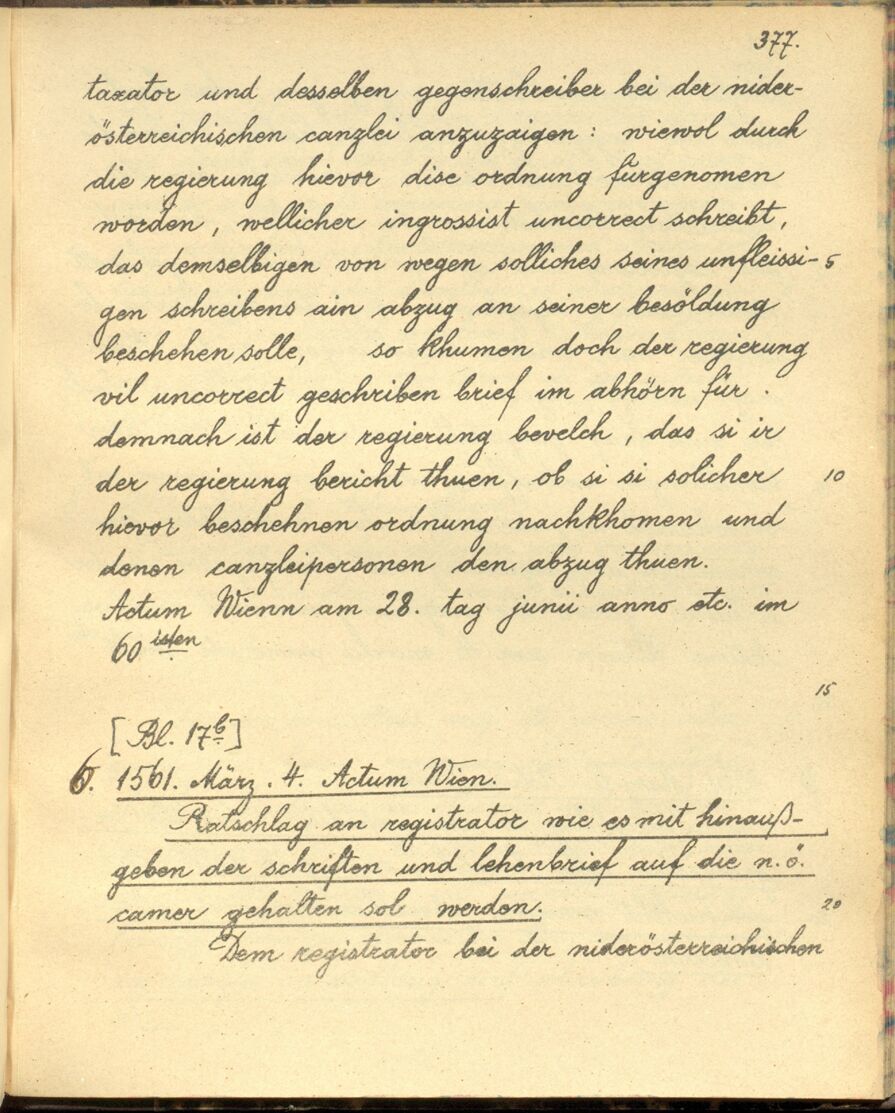 377.
taxator und desselben gegenschreiber bei der nider-
österreichischen canzlei anzuzaigen: wiewol durch
die regierung hievor dise ordnung fürgenomen
worden, wellicher ingrossist uncorrect schreibt,
das demselbigen von wegen solliches seines unfleissi- 5
gen schreibens ain abzug an seiner besöldung
beschehen solle, so khumen doch der regierung
vil uncorrect geschriben brief im abhörn für.
demnach ist der regierung bevelch, das si ir
der regierung bericht thuen, ob si si solicher 10
hievor beschehnen ordnung nachkhomen und
denen canzleipersonen den abzug thuen.
Actum Wienn am 28. tag junii anno etc. im
60 isten
15
[Bl. 17b]
6. 1561. März. 4. Actum Wien.
Ratschlag an registrator wie es mit hinauß-
geben der schriften und lehenbrief auf die n.ö.
camer gehalten sol werden. 20
Dem registrator bei der niderösterreichischen